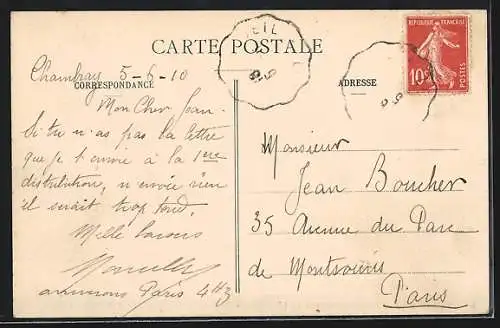 CARTE POSTALE
CORRESPONDANCE
ADRESSE
RÉPUBLIQUE FRANÇAISE
10
POSTES
Chambray 5-6-10
Mon Cher Jean.
Si tu n'as pas la lettre
que je t'envoie à la 1ère
distribution, n'envoie rien
il serait trop tard.
Mille baisers
arriverons Paris 4h3
Monsieur
Jean Boucher
35 Avenue du Parc
de Montsouris
Paris